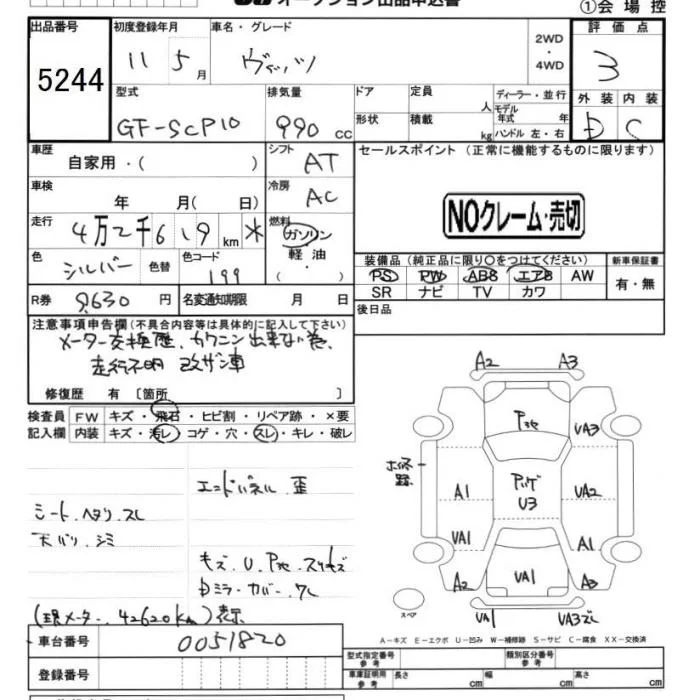 オークション出品申込書
①会場控
出品番号 初度登録年月 車名・グレード 評価点
5244
11 5月 ヴィッツ 2WD・4WD 3
型式 排気量 ドア 定員 人 ディーラー・並行 外装 内装
モデル年式 年
GF-SCP10 990 cc 形状 積載 kg ハンドル 左・右 D C
車歴 シフト セールスポイント (正常に機能するものに限ります)
自家用・( ) AT
車検 冷房
年 月( 日) AC
NOクレーム・売切
走行 燃料
4万2千619km * ガソリン
軽油
( )
色 色替 色コード 装備品(純正品に限り○をつけてください) 新車保証書
シルバー 199 PS PW ABS エアB AW 有・無
SR ナビ TV カワ
R券 9,630円 名変通知期限 月 日 後日品
注意事項申告欄(不具合内容等は具体的に記入して下さい)
メーター交換歴、
走行不明 改ザン車
修復歴 有 〔箇所 〕
検査員 FW キズ・飛石・ヒビ割・リペア跡・×要
記入欄 内装 キズ・汚レ・コゲ・穴・スレ・キレ・破レ
エンドパネル 歪
シート、ヘタリ、スレ
天バリ、シミ
キズ、U、
Dミラーカバー、ワレ
(現メーター、42620km)表示
A2 A3
UA3
A1 U3 UA2
UA1 A1
A2 UA1 A3
スペア
UA1 UA3
A-キズ E-エクボ U-凹み W-補修跡 S-サビ C-腐食 XX-交換済
車台番号 0051820
型式指定番号 参考 類別区分番号 参考
登録番号
車庫証明用 参考 長さ cm 幅 cm 高さ cm